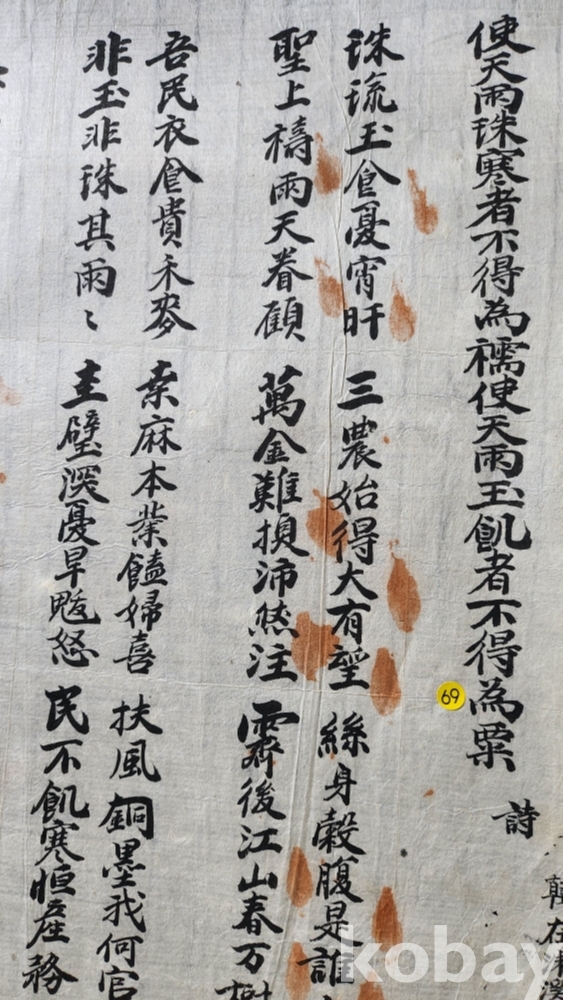 使天雨珠寒者不得為襦使天雨玉飢者不得為粟
詩
珠琉玉食憂宵旰 三農始得大有望 絲身穀腹是誰
聖上禱雨天眷顧 萬金難損沛然注 霽後江山春万樹
吾民衣食貴禾麥 桒麻本業饁婦喜 扶風銅墨我何官
非玉非珠其雨〻 圭璧深憂旱魃怒 民不飢寒恒産務
69
kobay